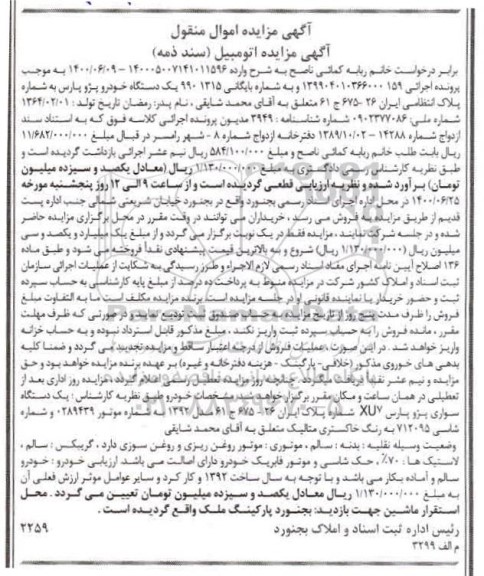 آگهی مزایده اموال منقول
آگهی مزایده اتومبیل (سند ذمه)
برابر درخواست خانم ربابه کمائی ناصح به شرح وارده ۱۴۰۰۰۵۰۰۷۱۴۱۰۱۱۵۹۶ – ۱۴۰۰/۰۶/۰۹ به موجب
پرونده اجرائی ۱۳۹۹۰۴۰۱۰۳۶۶۰۰۰ ۱۵۹ و به شماره بایگانی ۹۹۰ ۱۳۱۵ یک دستگاه خودرو پژو پارس به شماره
پلاک انتظامی ایران ۲۶ -۶۷۵ ج ۶۱ متعلق به آقای محمد شایقی ، نام پدر: رمضان تاریخ تولد : ۱۳۶۴/۰۲/۰۱
شماره ملی: ۰۹۰۲۳۷۷۰۸۶ شماره شناسنامه : ۳۹۴۹ مدیون پرونده اجرائی کلاسه فوق که به استناد سند
ازدواج شماره ۱۴۲۸۸ – ۱۳۸۹/۱۰/۰۲ دفترخانه ازدواج شماره ۸ – شهر رامسر در قبال مبلغ ۱۱/۶۸۲/۰۰۰/۰۰۰
ریال بابت طلب خانم ربابه کمائی ناصح و مبلغ ۵۸۴/۱۰۰/۰۰۰ ریال نیم عشر اجرائی بازداشت گردیده است و
طبق نظریه کارشناس رسمی دادگستری به مبلغ ۱/۱۳۰/۰۰۰/۰۰۰ ریال (معادل یکصد و سیزده میلیون
تومان) بر آورد شده و نظریه ارزیابی قطعی گردیده است و از ساعت ۹ الی ۱۲ روز پنجشنبه مورخه
۱۴۰۰/۰۶/۲۵ در محل اداره اجرای اسناد رسمی بجنورد واقع در بجنورد خیابان شریعتی شمالی جنب اداره پست
قدیم از طریق مزایده به فروش می رسد ، خریداران می توانند در وقت مقرر در محل برگزاری مزایده حاضر
شده و در جلسه شرکت نمایند ، مزایده فقط در یک نوبت برگزار می گردد و از مبلغ یک میلیارد و یکصد و سی
میلیون ریال (۱/۱۳۰/۰۰۰/۰۰۰ ریال) شروع و به بالاترین قیمت پیشنهادی نقداً فروخته می شود و طبق ماده
۱۳۶ اصلاح آیین نامه اجرای مفاد اسناد رسمی لازم الاجراء و طرز رسیدگی به شکایت از عملیات اجرائی سازمان
ثبت اسناد و املاک کشور شرکت در مزایده منوط به پرداخت ده درصد از مبلغ پایه کارشناسی به حساب سپرده
ثبت و حضور خریدار یا نماینده قانونی او در جلسه مزایده است برنده مزایده مکلف است ما به التفاوت مبلغ
فروش را ظرف مدت پنج روز از تاریخ مزایده به حساب صندوق ثبت تودیع نماید و در صورتی که ظرف مهلت
مقرر ، مانده فروش را به حساب سپرده ثبت واریز نکند ، مبلغ مذکور قابل استرداد نبوده و به حساب خزانه
واریز خواهد شد . در این صورت ، عملیات فروش از درجه اعتبار ساقط و مزایده تجدید می گردد و ضمنا کلیه
بدهی های خودروی مذکور (خلافی- پارکینگ - هزینه دفترخانه و غیره) بر عهده برنده مزایده خواهد بود و حق
مزایده و نیم عشر نقداً دریافت میگردد . چنانچه روز مزایده تعطیل رسمی اعلام گردد ، مزایده روز اداری بعد از
تعطیلی در همان ساعت و مکان مقرر برگزار خواهد شد . مشخصات خودرو طبق نظریه کارشناس : یک دستگاه
سواری پژو پارس XU۷ شماره پلاک ایران ۲۶ – ۶۷۵ ج ۶۱ مدل ۱۳۹۲ با شماره موتور ۰۲۸۹۴۳۹ و شماره
شاسی ۷۱۲۰۹۵ به رنگ خاکستری متالیک متعلق به آقای محمد شایقی
وضعیت وسیله نقلیه : بدنه : سالم ، موتوری : موتور روغن ریزی و روغن سوزی دارد ، گیربکس : سالم ،
لاستیک ها : ۷۰٪ ، حک شاسی و موتور فابریک خودرو دارای اصالت می باشد. ارزیابی خودرو : خودرو
سالم و آماده بکار می باشد و با توجه به سال ساخت ۱۳۹۲ و کارکرد و سایر عوامل موثر ارزش فعلی آن
به مبلغ ۱/۱۳۰/۰۰۰/۰۰۰ ریال معادل یکصد و سیزده میلیون تومان تعیین می گردد . محل
استقرار ماشین جهت بازدید: بجنورد پارکینگ ملک واقع گردیده است .
رئیس اداره ثبت اسناد و املاک بجنورد ۲۲۵۹
م الف ۳۲۹۹